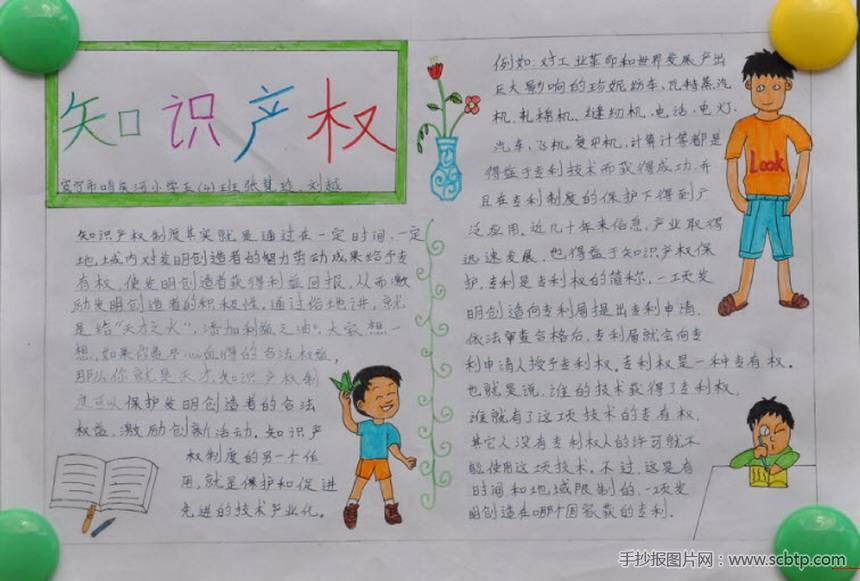 知识产权
河小学五(4)班张慧玲、刘越
知识产权制度其实就是通过在一定时间、一定
地域内对发明创造者的智力劳动成果给予专
有权，使发明创造者获得利益回报，从而激
励发明创造者的积极性，通过俗地讲，就
是给“天才之火”，添加利益之油。大家想一
想，如果你是个心血得的合法权益，
那么你就是天才知识产权制
度可以保护发明创造者的合法
权益，激励创新活动。知识产
权制度的另一个作
用，就是保护和促进
先进的技术产业化。
例如：对工业革命和世界发展产出
巨大影响的珍妮纺车、瓦特蒸汽
机、轧棉机、缝纫机、电话、电灯、
汽车、飞机、复印机、计算计等都是
得益于专利技术而获得成功，并
且在专利制度的保护下得到广
泛应用。近几十年来信息，产业取得
迅速发展，也得益于知识产权保
护，专利是专利权的简称，一项发
明创造向专利局提出专利申请，
依法审查合格后，专利局就会向专
利申请人授予专利权。专利权是一种专有权。
也就是说，谁的技术获得了专利权，
谁就有了这项技术的专有权，
其它人没有专利权人的许可就不
能使用这项技术。不过，这是有
时间和地域限制的，一项发
明创造在哪个国家获的专利。
Look
手抄报图片网：www.scbtp.com